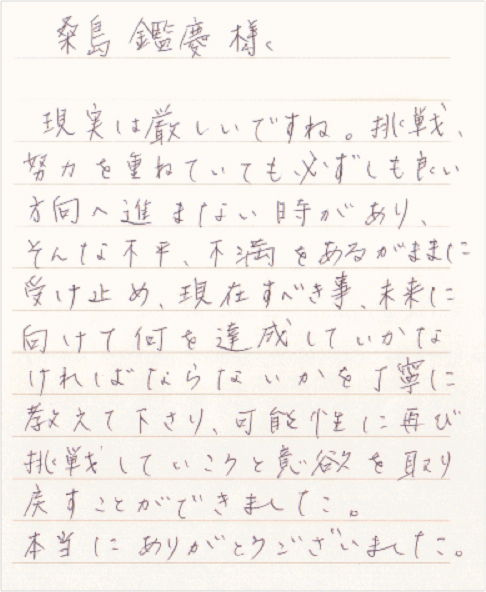 桑島 鑑慶 様、
現実は厳しいですね。挑戦、
努力を重ねていても必ずしも良い
方向へ進まない時があり、
そんな不平、不満をあるがままに
受け止め、現在すべき事、未来に
向けて何を達成していかな
ければならないかを丁寧に
教えて下さり、可能性に再び
挑戦していこうと意欲を取り
戻すことができました。
本当にありがとうございました。